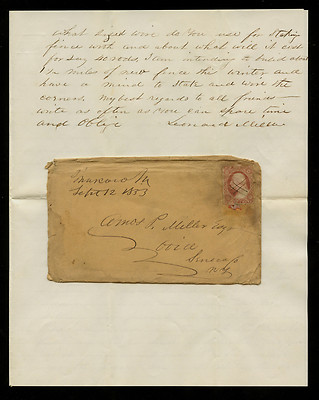 What sized wire do you use for Staking
fence with and about what will it cost
for say 80 rods, I am intending to build about
miles of new fence this winter and
have a mind to Stake and wire the
corners, my best regards to all friends
write as often as you can spare time
and Oblige Leonard Miller
Sept 12 1853
Amos P. Miller Esqr
Ovid
Seneca Co
N.Y.